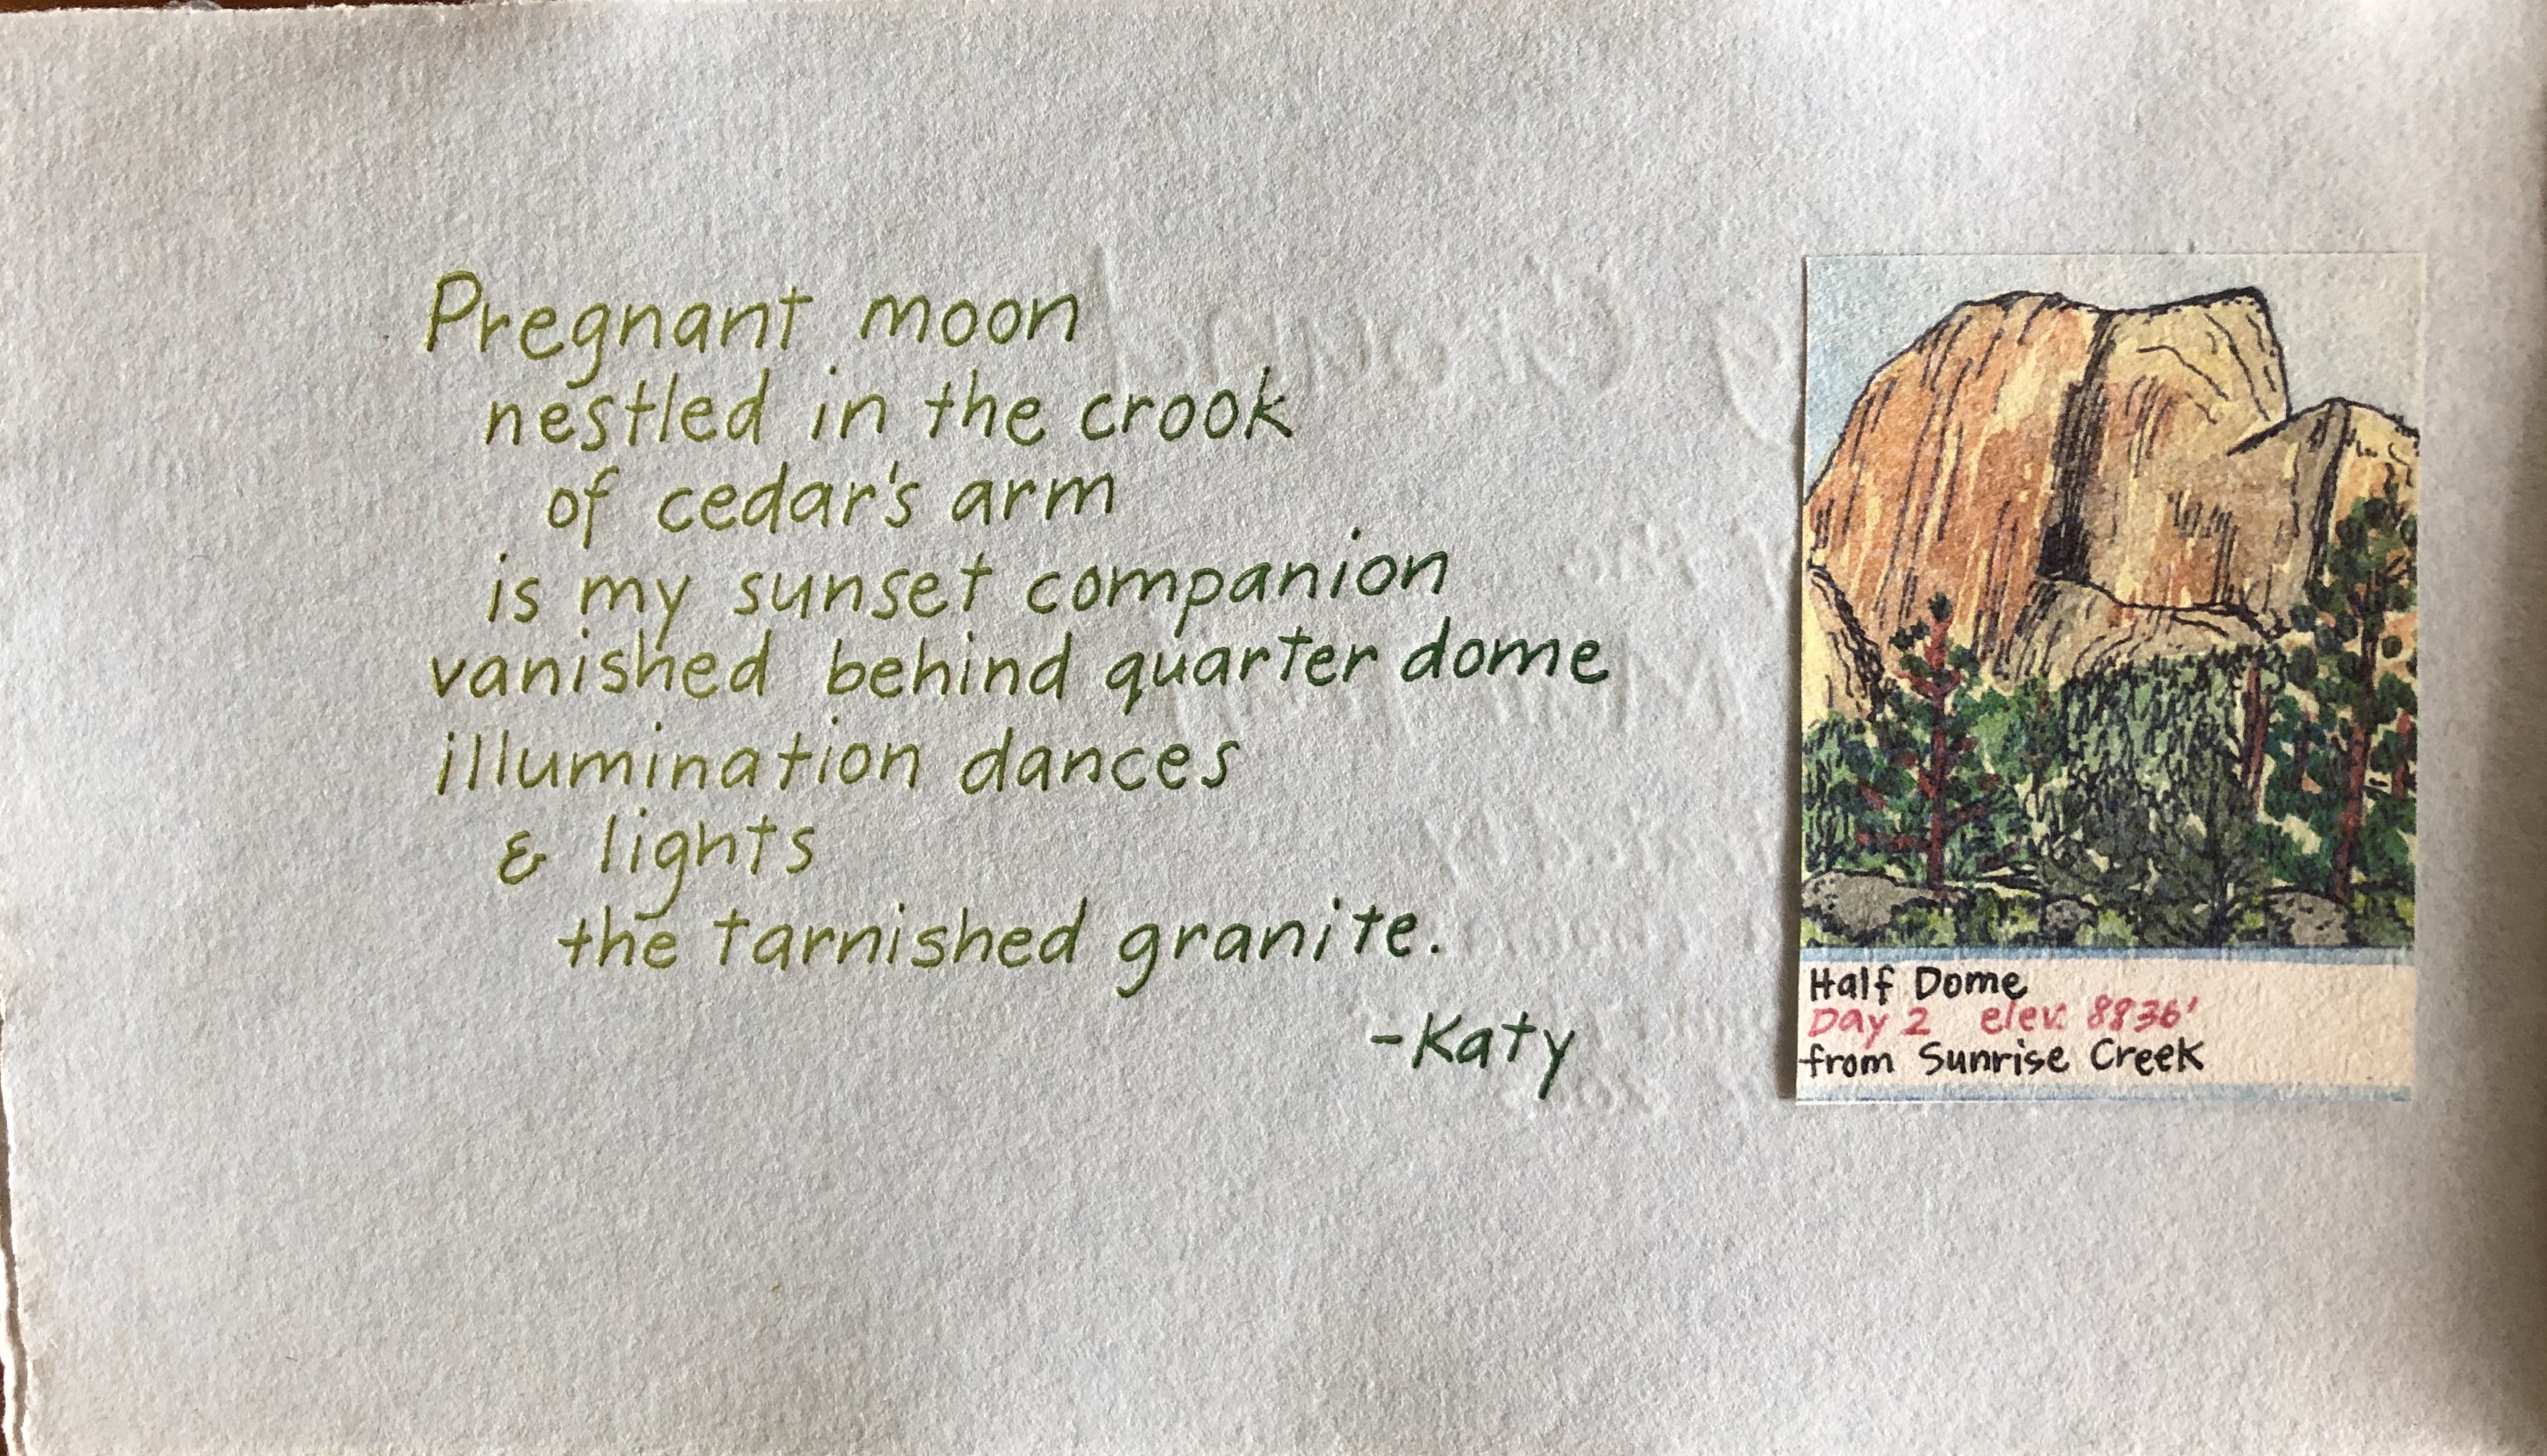 Pregnant moon
nestled in the crook
of cedar's arm
is my sunset companion
vanished behind quarter dome
illumination dances
& lights
the tarnished granite.
-Katy
Half Dome
Day 2 elev. 8836'
from Sunrise Creek